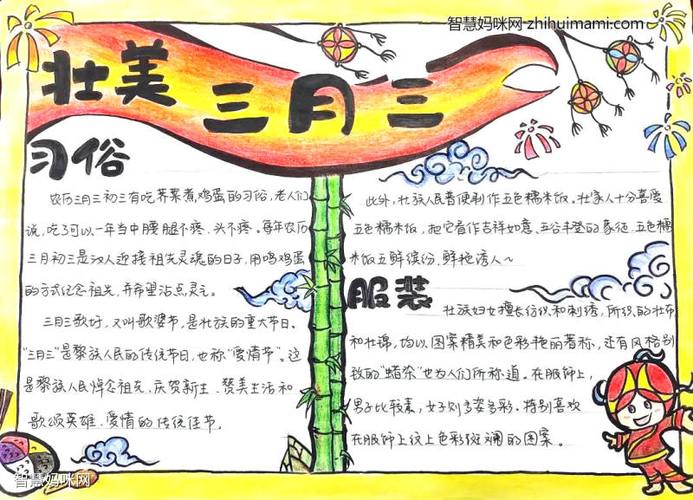 智慧妈咪网-zhihuimami.com
壮美三月三
习俗
农历三月三初三有吃荠菜煮鸡蛋的习俗,老人们
说,吃了可以一年当中腰腿不疼、头不疼。每年农历
三月初三是汉人迎接祖先灵魂的日子,用鸣鸡蛋
的方式纪念祖先,并希望沾点灵气。
三月三歌好,又叫歌婆节,是壮族的重大节日。
“三月三”是黎族人民的传统节日,也称“爱情节”。这
是黎族人民悼念祖先、庆贺新生、赞美生活和
歌颂英雄、爱情的传统佳节。
此外,壮族人民普便制作五色糯米饭。壮家人十分喜爱
五色糯米饭,把它看作吉祥如意、五谷丰登的象征,五色糯
米饭五鲜缤纷,鲜艳诱人~
服装
壮族妇女擅长纺织和刺绣,所织的壮布
和壮锦,均以图案精美和色彩艳丽著称,还有风格别
致的“蜡染”也为人们所称道。在服饰上,
男子比较素,女子则多姿多彩。特别喜欢
在服饰上纹上色彩斑斓的图案。
智慧妈咪网